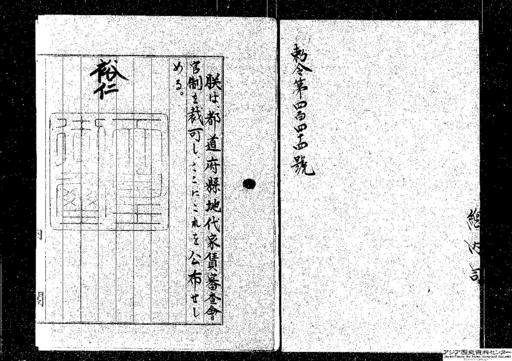 勅令第四百四十四號
朕は、都道府縣地代家賃審査會
官制を裁可し、ここにこれを公布せし
める。
裕仁
内閣
アジア歴史資料センター